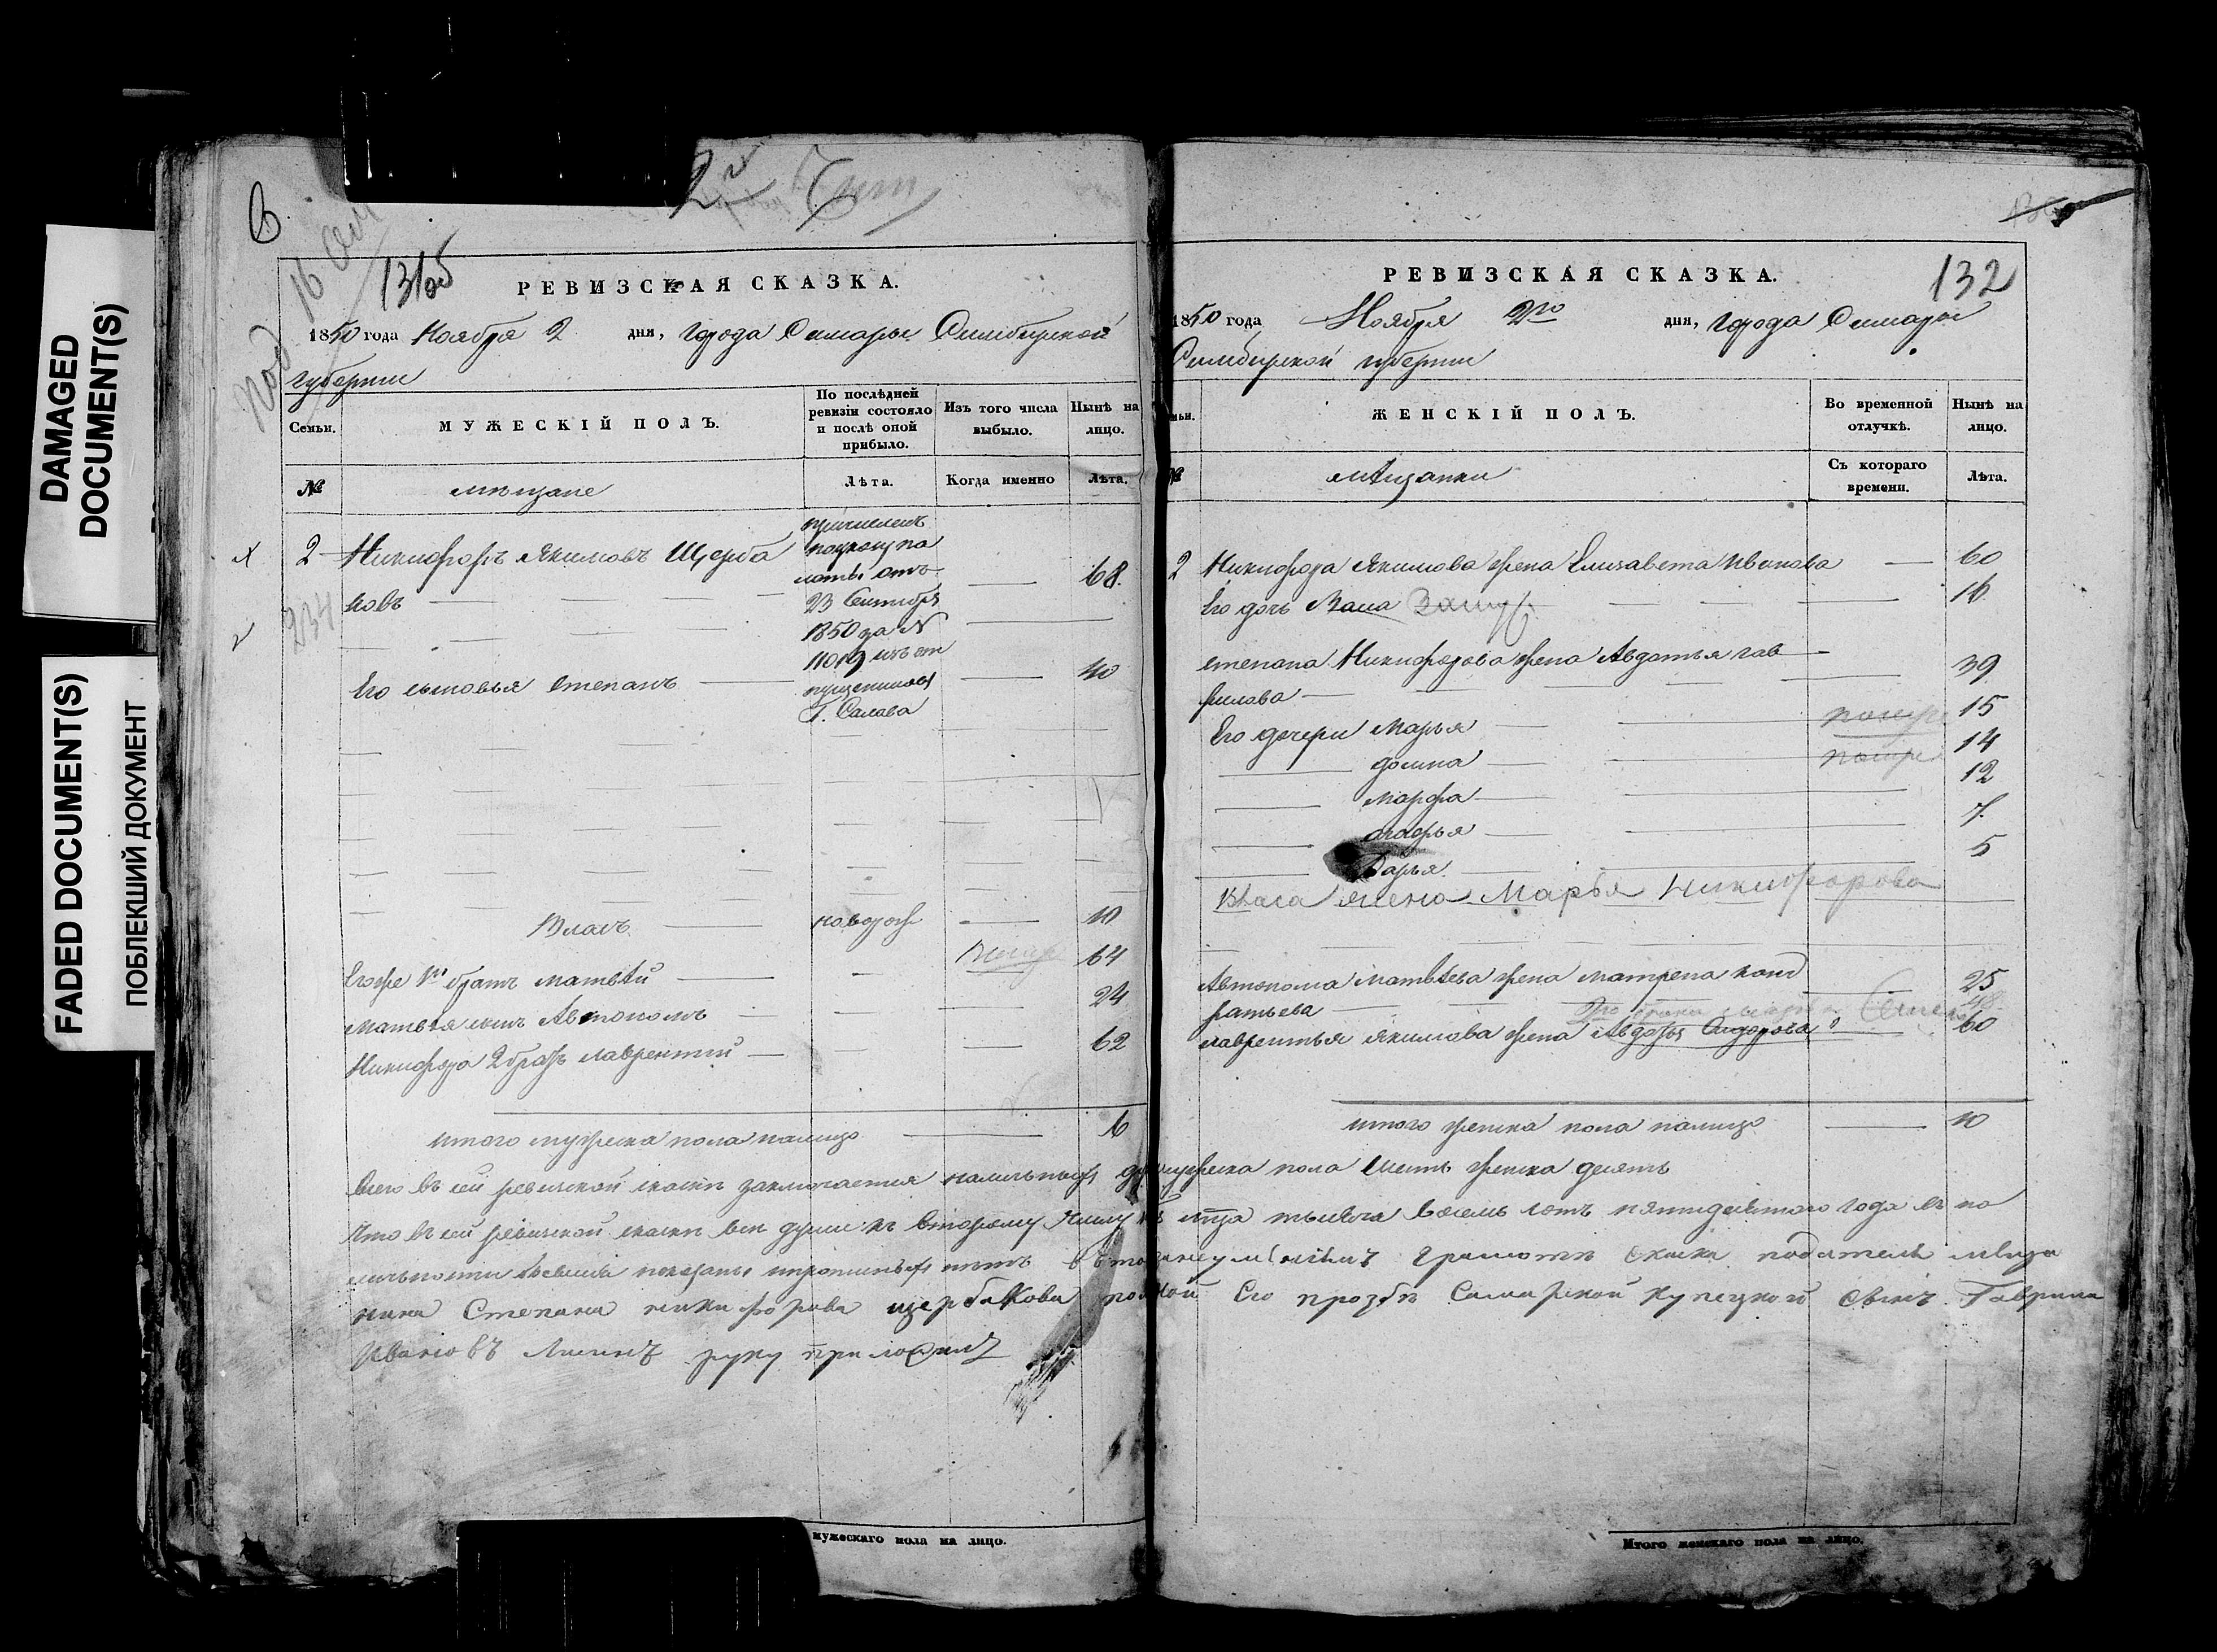 DAMAGED
DOCUMENT(S)
FADED DOCUMENT(S)
ПОБЛЕКШИЙ ДОКУМЕНТ
6
под 16
131об
РЕВИЗСКАЯ СКАЗКА.
1850 года Ноября 2 дня, города Самары Симбирской
губернии
Семьи.
МУЖЕСКІЙ ПОЛЪ.
По послѣдней
ревизіи состояло
и послѣ оной
прибыло.
Изъ того числа
выбыло.
Нынѣ на
лицо.
№
мещане
Лѣта.
Когда именно
Лѣта.
2 Никифоръ Якимовъ Щерба
ковъ
68
причисленъ
по указу па
латы отъ
23 Сентября
1850 за №
11019 изъ от
пущенниковъ
Г.
234
Его сыновья Степанъ 40
Власъ новорож 10
Егоже 1й братъ Матвѣй 64
Матвѣя сынъ Автономъ 24
Никифора 2 братъ Лаврентий 62
итого мужеска пола налицо 6
мужескаго пола на лицо.
РЕВИЗСКАЯ СКАЗКА.
132
1850 года Ноября 2го дня, города Самары
Симбирской губернии
ЖЕНСКІЙ ПОЛЪ.
Во временной
отлучкѣ.
Нынѣ на
лицо.
№
мѣщанки
Съ котораго
времени.
Лѣта.
2 Никифора Якимова жена Елизавета Иванова 60
Его дочь 16
Степана Никифорова жена Авдотья Гав 39
рилова
Его дочери Марья 15
Домна 14
Марфа 12
7
Дарья 5
Власа жена Марья Никифорова
Автонома Матвѣева жена Матрена Конд 25
ратьева
Лаврентья Якимова жена Авдотья Сидорова 60
итого женска пола налицо 10
Всего въ сей ревизской сказке заключается наличныхъ душ мужеска пола шесть женска десять
Что въ сей ревизской сказке все души къ второму числу тысяча восемь сотъ пятидесятого года въ на
личности бывшия показаны и прописныхъ нетъ грамоте сказки подателя меща
нина Степана Никифорова Щербакова по его прозбе Самарской купецкой сынъ Гаврила
Ивановъ руку приложилъ
Итого женскаго пола на лицо.